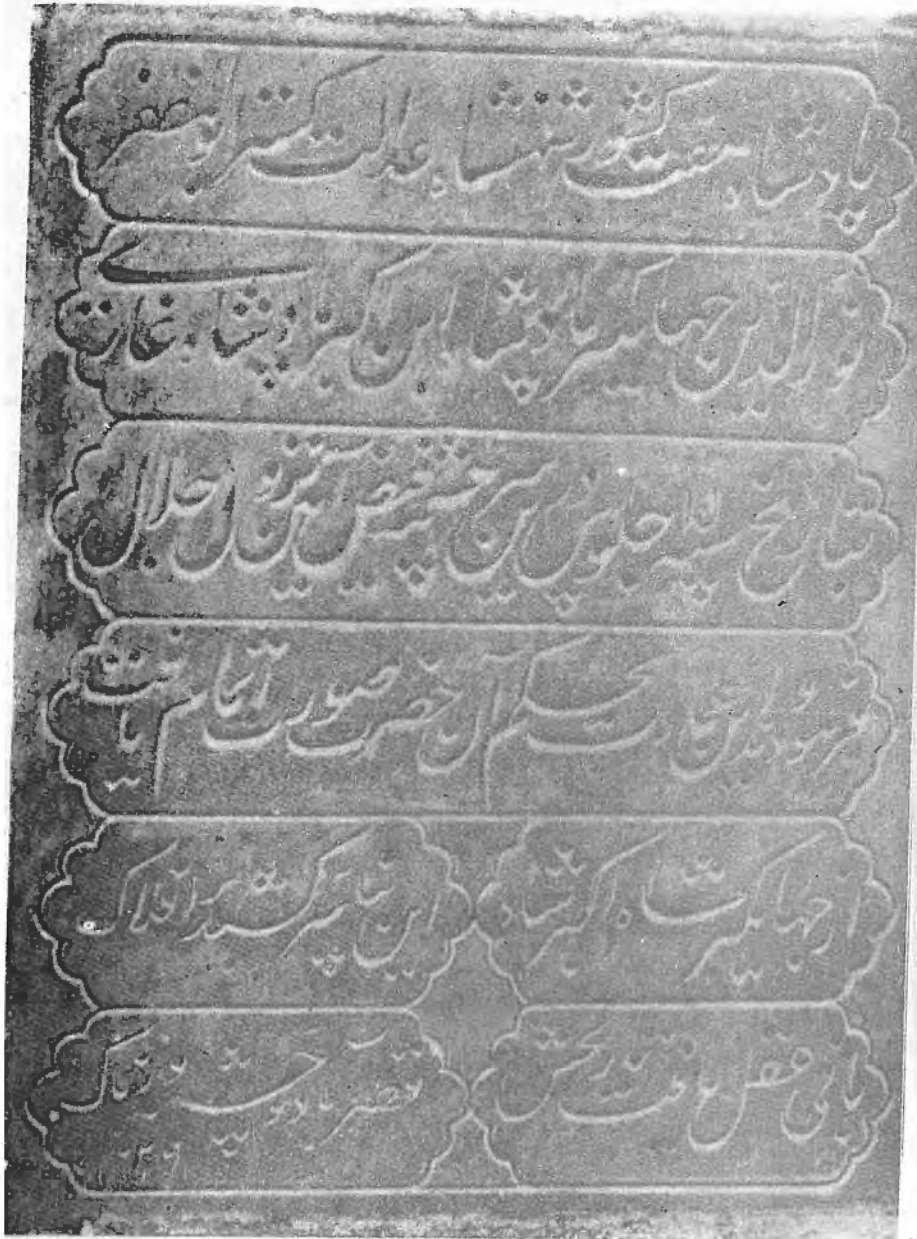 پادشاه هفت کشور شهنشاه عدالت گستر ابوالمظفر
نورالدین جهانگیر پادشاه ابن اکبر پادشاه غازی
بتاریخ سنه ۱۵ جلوس درین سرچشمه فیض آیین نزول اجلال
فرمودند و این عمارت بحکم آن حضرت صورت اتمام یافت
از جهانگیر شاه اکبر شاه
این بنا سر کشید بر افلاک
بانی عقل یافت تاریخش
قصر آباد و چشمه ورناک
۱۰۲۹